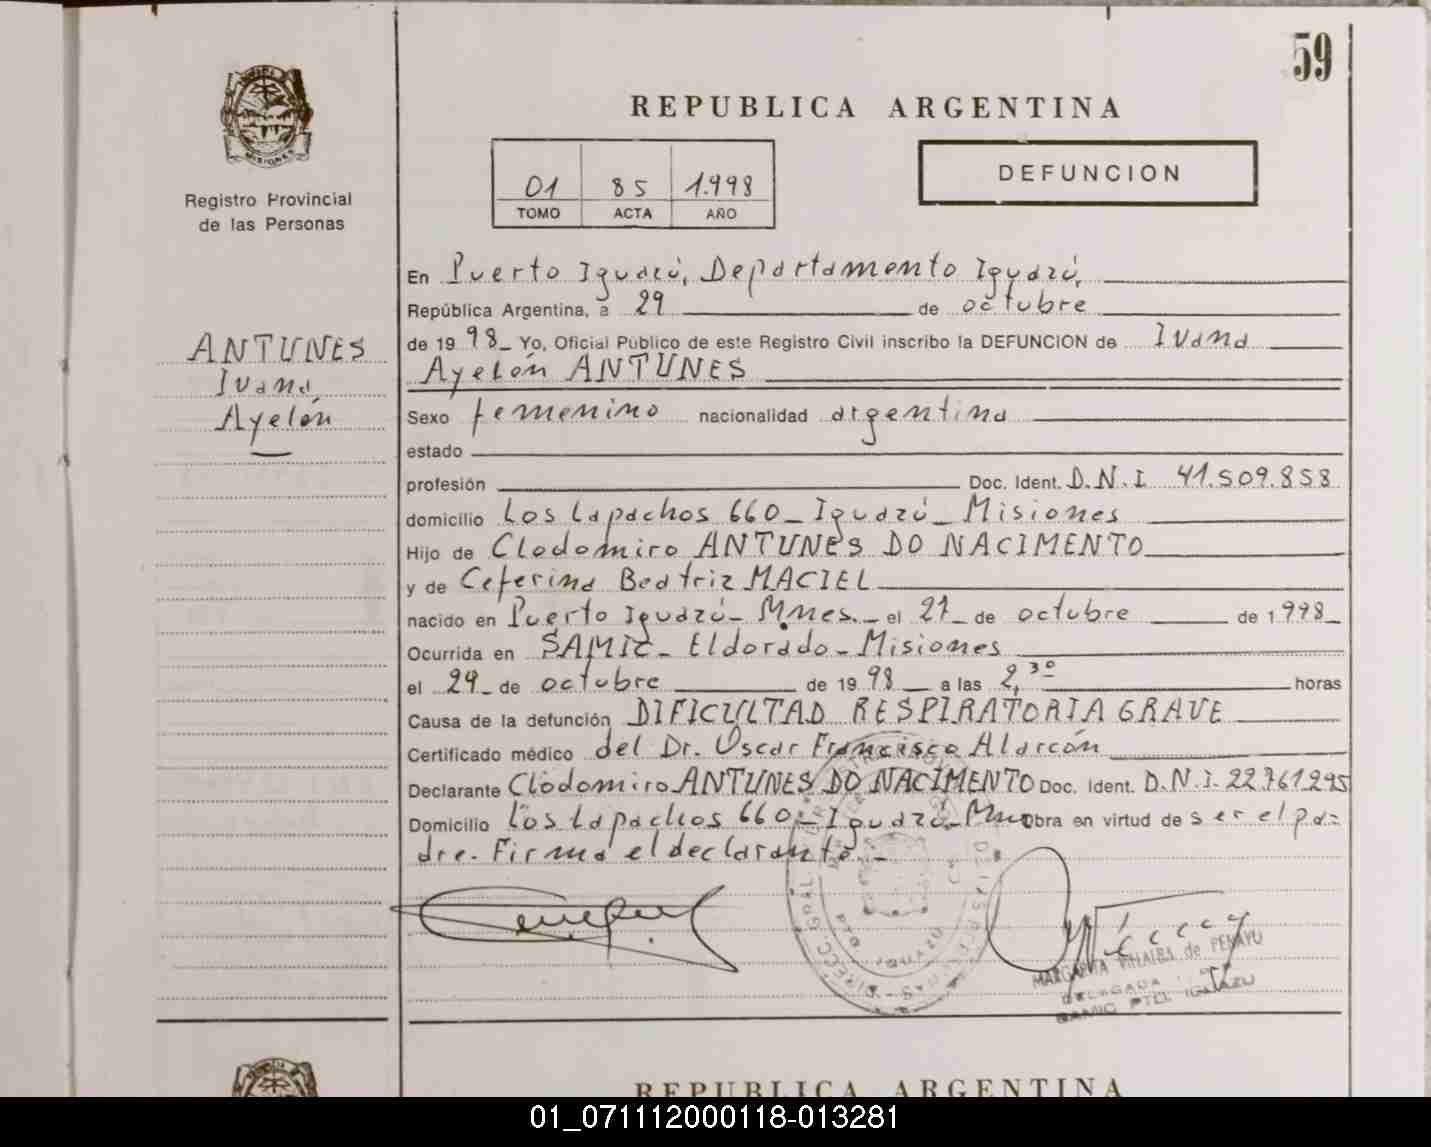 59
REPUBLICA ARGENTINA
MISIONES
Registro Provincial
de las Personas
01 85 1.998
TOMO ACTA AÑO
DEFUNCION
ANTUNES
Ivana
Ayelén
En Puerto Iguazú, Departamento Iguazú,
República Argentina, a 29 de octubre
de 1998_ Yo, Oficial Público de este Registro Civil inscribo la DEFUNCION de Ivana
Ayelén ANTUNES
Sexo femenino nacionalidad argentina
estado
profesión Doc. Ident. D.N.I 41.509.858
domicilio Los Lapachos 660_ Iguazú_ Misiones
Hijo de Clodomiro ANTUNES DO NACIMENTO
y de Ceferina Beatriz MACIEL
nacido en Puerto Iguazú_ Mnes._ el 27_ de octubre de 1998_
Ocurrida en SAMIC_ Eldorado_ Misiones
el 29_ de octubre de 1998 a las 2,30 horas
Causa de la defunción DIFICULTAD RESPIRATORIA GRAVE
Certificado médico del Dr. Oscar Francisco Alarcón
Declarante Clodomiro ANTUNES DO NACIMENTO Doc. Ident. D.N.I. 22.761.295
Domicilio Los Lapachos 660_ Iguazú_ Mnes Obra en virtud de ser el pa=
dre. Firma el declarante._
MARGARITA VILLALBA de PENAYO
DELEGADA
REPUBLICA ARGENTINA
01_071112000118-013281